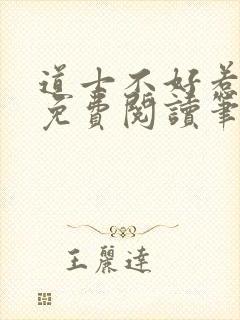 道士不好惹
免費閱讀筆
王麗達